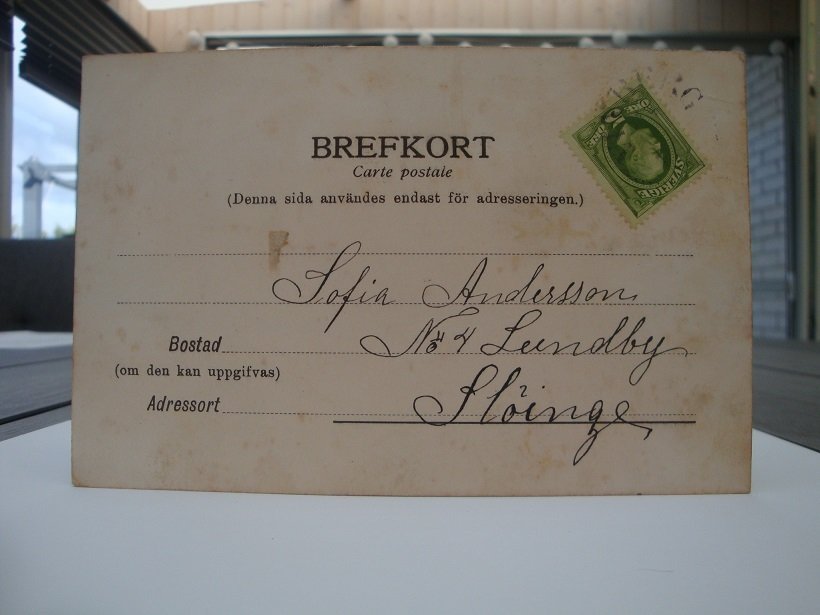 BREFKORT
Carte postale
(Denna sida användes endast för adresseringen.)
5 ÖRE
SVERIGE
Sofia Andersson
Bostad No 4 Lundby
(om den kan uppgifvas)
Adressort Slöinge